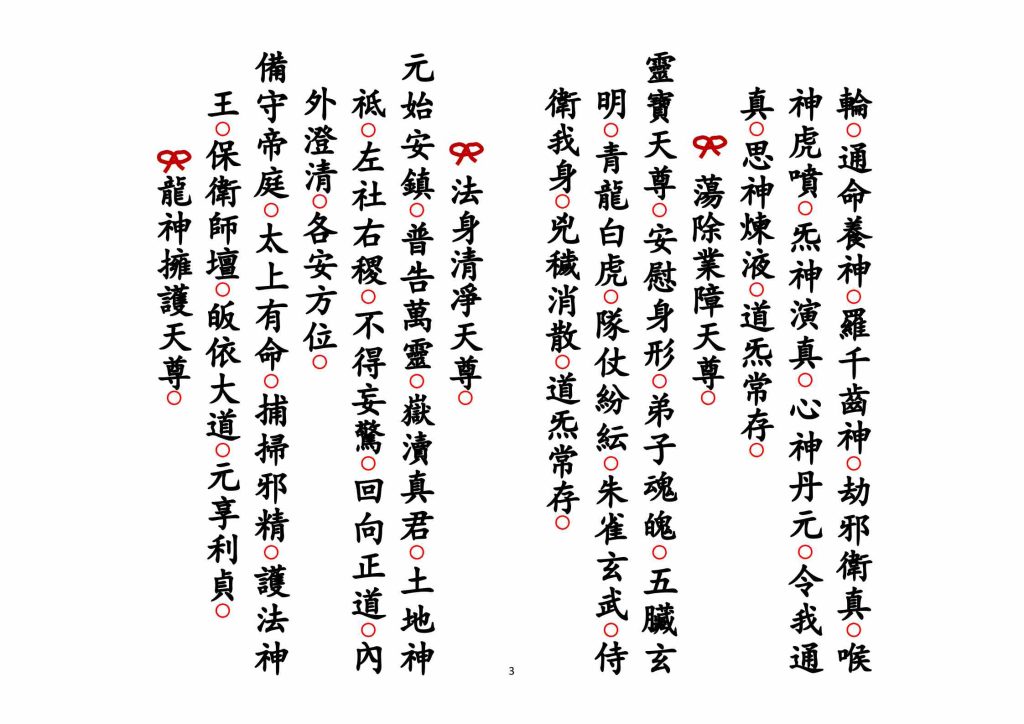 輪○通命養神○羅千齒神○劫邪衛真○喉
神虎噴○炁神演真○心神丹元○令我通
真○思神煉液○道炁常存○
蕩除業障天尊○
靈寶天尊○安慰身形○弟子魂魄○五臟玄
明○青龍白虎○隊仗紛紜○朱雀玄武○侍
衛我身○兇穢消散○道炁常存○
法身清凈天尊○
元始安鎮○普告萬靈○嶽瀆真君○土地神
祇○左社右稷○不得妄驚○回向正道○內
外澄清○各安方位○
備守帝庭○太上有命○捕掃邪精○護法神
王○保衛師壇○皈依大道○元享利貞○
龍神擁護天尊○
3